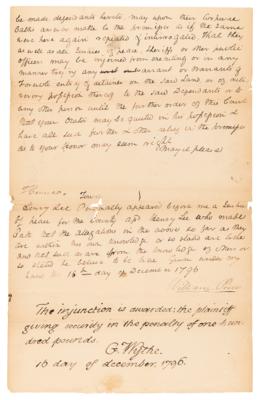 be made defendants hereto may upon their Corporal
Oaths answer make to the premises as if the same
were here again repeated & interrogated that they
as well as all Justices of peace, Sheriffs or other publick
Officer may be injoined from meddling or in any
manner by any warrant or warrants of
Forcible entry & detainer on the said Land or of
possession thereof to the said Defendants or to
any other person until the further order of this Court
that your Orator may be quieted in his possession &
have all such further & other relief in the premises
as to your Honor may seem right
&c
to wit
Henry Lee Personally appeared before me a Justice
of peace for the County of Henry Lee who made
Oath that the allegations in the above so far as they
are within his own knowledge
and not such as are from the knowledge of others or
so stated he believes to be true Given under my
hand this 16th day of December 1796
The injunction is awarded; the plaintiff
giving security in the penalty of one hun-
dred pounds.
G. Wythe.
16 day of december, 1796.